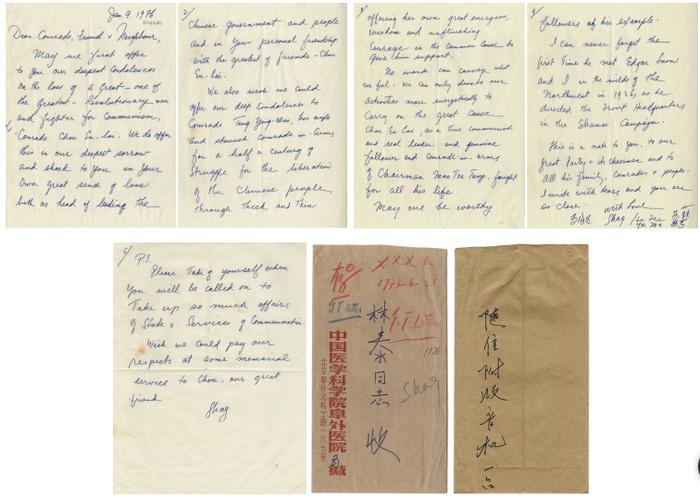 Jan. 9. 1976
Dear Comrade, Friend & Neighbour,
May we first offer
to you our deepest Condolences
on the loss of a Great - one of
the Greatest - Revolutionary men
and fighter for Communism,
Comrade Chou En-lai. We do offer
this in our deepest sorrow
and shock to you in your
Own great sense of loss
both as head of leading the
2/
Chinese Government and people
and in your personal friendship
with the greatest of friends - Chou
En-lai.
We also weak we could
offer our deep Condolences to
Comrade Teng Ying-chao, his wife
and staunch Comrade-in-Arms
for a half a century of
Struggle for the liberation
of the Chinese people
through Thick and Thin
offering her own great energies,
Wisdom and unflinching
Courage in the Common Cause to
give him support.
No word can convey what
we feel. We can only donate our
activities more energetically to
Carry on the Great Cause
Chou En Lai, as a true communist
and real leader and genuine
follower and Comrade-in-arms
of Chairman Mao Tse Tung, fought
for all his life.
May we be worthy
followers of his example.
I can never forget the
first time he met Edgar Snow
and I in the wilds of the
Northwest in 1936, as he
directed the Front Headquarters
in the Shansi Campaign.
This is a note to you, to our
Great Party & its Chairman and to
all his family, Comrades & people.
I write with tears and you are
so close.
With Love
Shag
5/
P.S.
Please Take of yourself when
you will be called on to
Take up so much affairs
of State & Services of Commemoration
Wish we could pay our
respects at some memorial
service to Chou, our great
friend.
Shag
XXXX
林泰 同志 收
Shag
1976
中国医学科学院阜外医院 缄
北京阜外北礼士路一六七号
随信附收音机一台